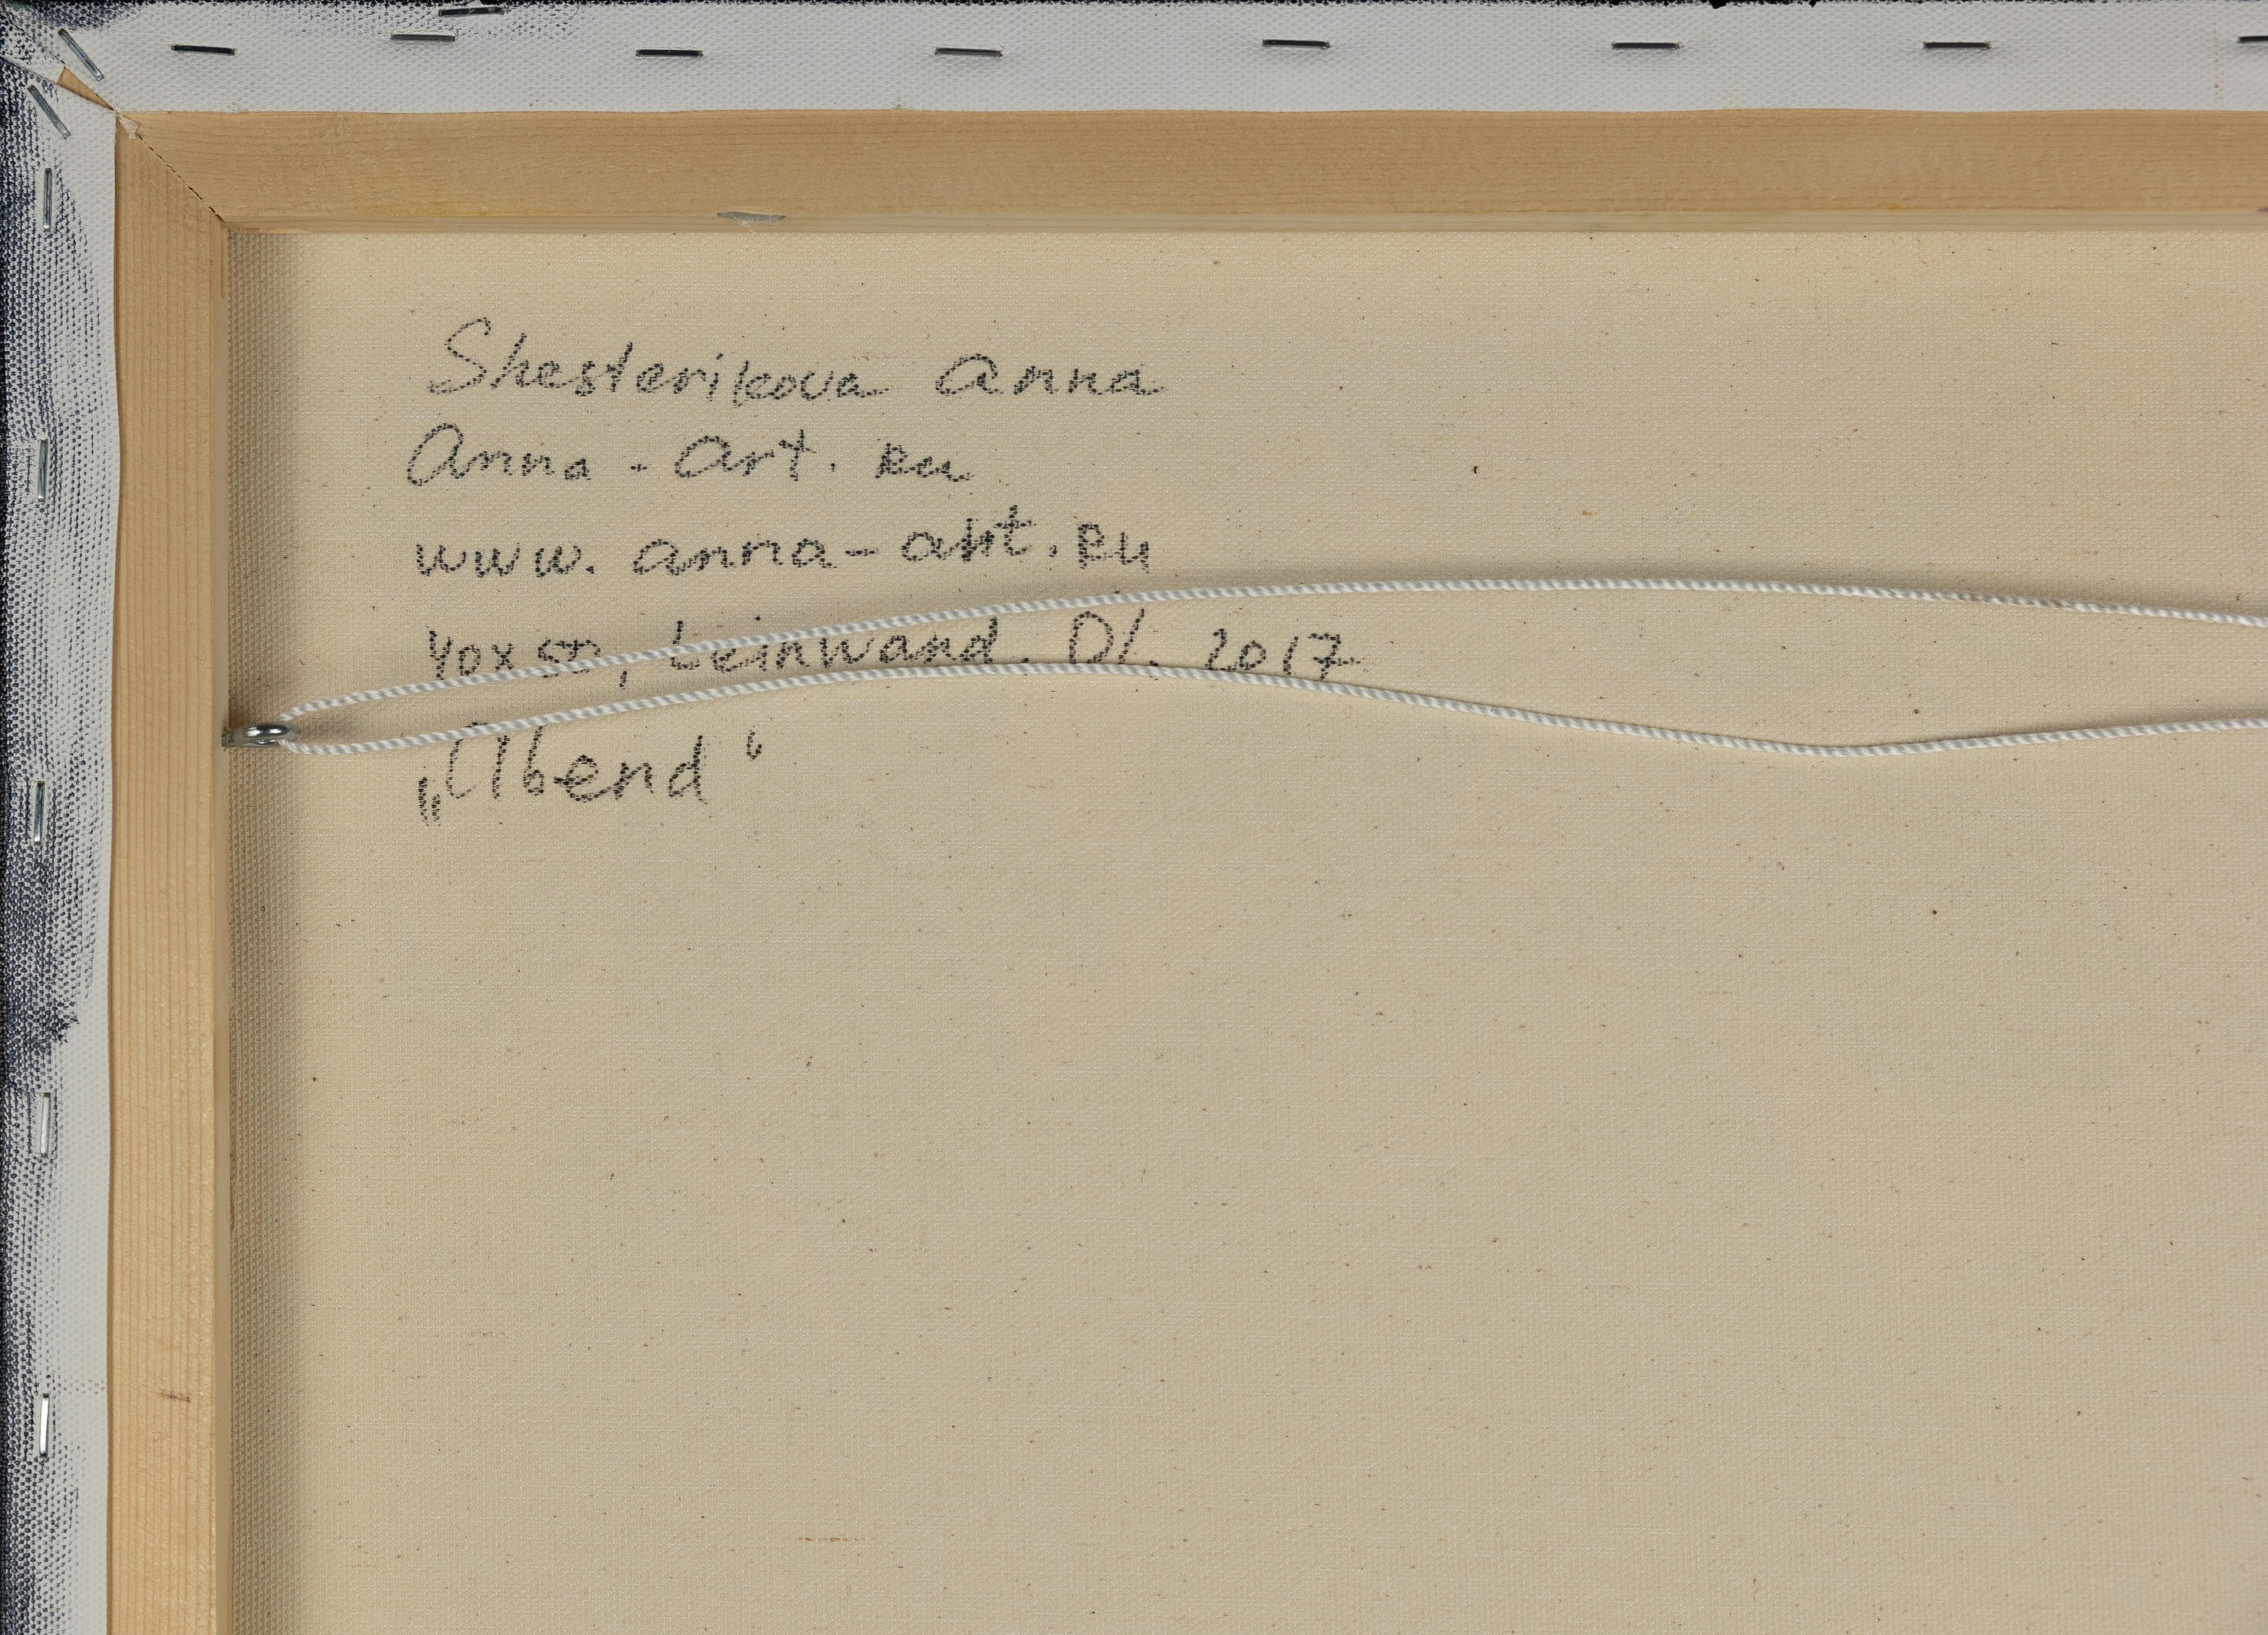 Shesterikova Anna
Anna-art.ru
www.anna-art.ru
40x50, Leinwand. Öl. 2017
„Abend“